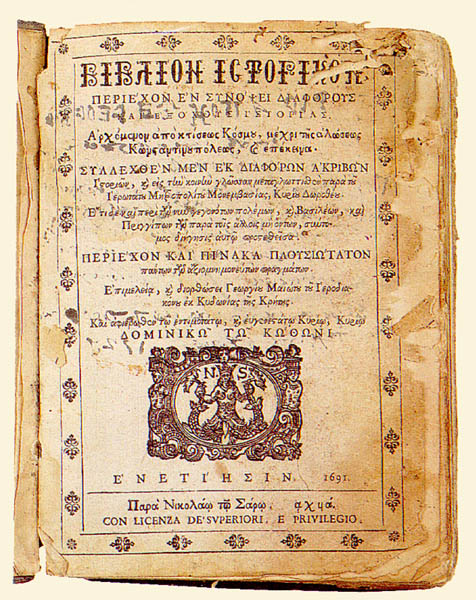 ΒΙΒΛΙΟΝ ΙΣΤΟΡΙΚΟΝ
ΠΕΡΙΕ'ΧΟΝ Ε'Ν ΣΥΝΟ'ΨΕΙ ΔΙΑΦΟΡΟΥΣ
Α'ρχόμενον ἀπὸ κτίσεως Κόσμου, μέχρι τῆς ἁλώσεως
Κωνσταντινουπόλεως, ϗ ἐπέκεινα.
ΣΥΛΛΕΧΘΕ'Ν ΜΕ'Ν ΕΚ ΔΙΑΦΟ'ΡΩΝ Α'ΚΡΙΒΩΝ
Ἱστοριῶν, ϗ εἰς τὴν κοινὴν γλῶσσαν μεταγλωττισθὲν παρὰ τοῦ
Ἱερωτάτου Μητροπολίτου Μονεμβασίας, Κυρίου Δωροθέου.
Βασιλέων, καὶ
ΠΕΡΙΕ'ΧΟΝ ΚΑΙ ΠΙ'ΝΑΚΑ ΠΛΟΥΣΙΩ'ΤΑΤΟΝ
πάντων τῶν ἀξιομνημονεύτων πραγμάτων.
Ε'πιμελείᾳ, ϗ διορθώσει Γεωργίου Μαιώτη τοῦ Ἱεροδια-
κόνου ἐκ Κυδωνίας τῆς Κρήτης.
Καὶ ἀφιερωθὲν τῷ ἐντιμοτάτῳ, ϗ εὐγενεστάτῳ Κυρίῳ, Κυρίῳ
ΔΟΜΙΝΙΚΩ ΤΩ ΚΩΘΩΝΙ.
N S
Ε'ΝΕΤΙΗΣΙΝ. 1691.
Παρὰ Νικολάῳ τῷ Σάρῳ. αχϟά.
CON LICENZA DE' SVPERIORI, E PRIVILEGIO.